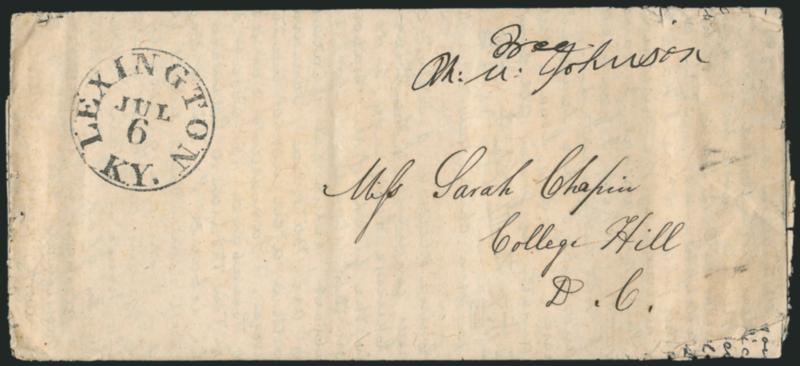 LEXINGTON KY.
JUL
6
Free
M. U. Johnson
Miss Sarah Chapin
College Hill
D. C.